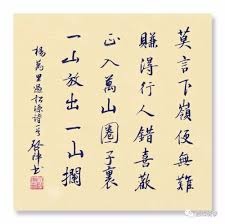 莫言下嶺便無難
賺得行人錯喜歡
正入萬山圈子裏
一山放出一山攔
楊萬里過松源詩一首